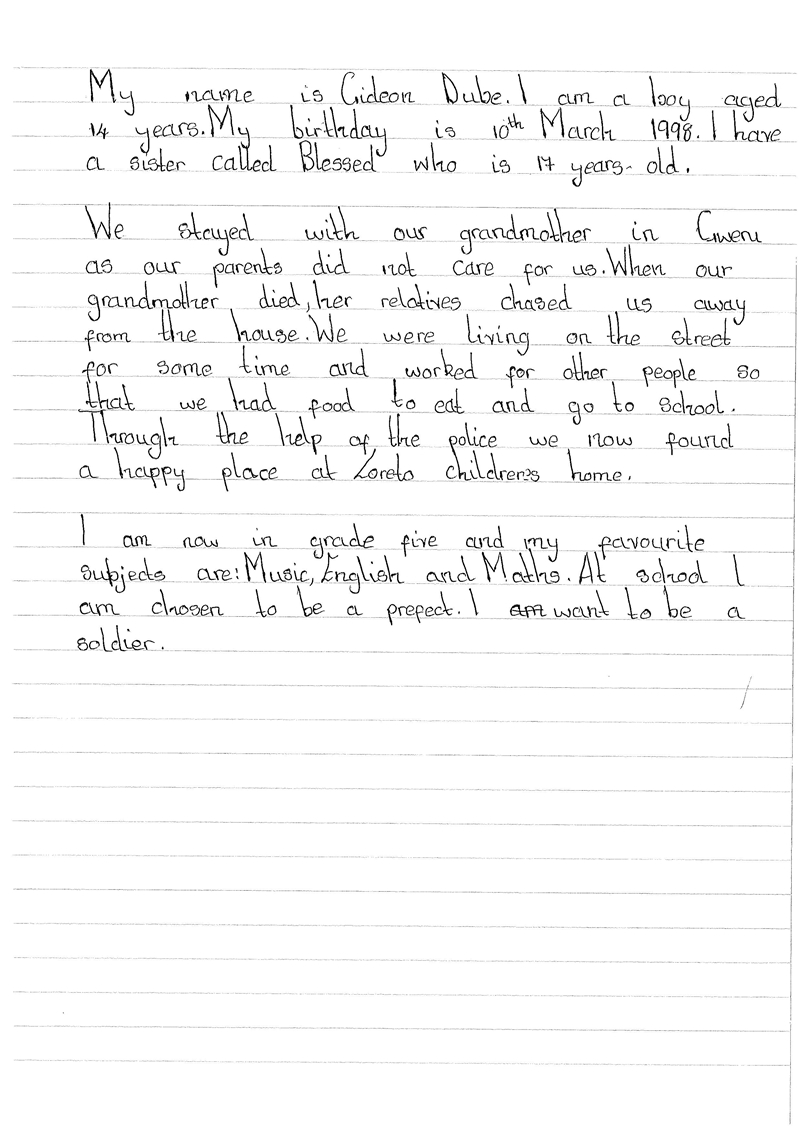 My name is Gideon Dube. I am a boy aged
14 years. My birthday is 10th March 1998. I have
a sister called Blessed who is 17 years- old.
We stayed with our grandmother in Gweru
as our parents did not care for us. When our
grandmother died, her relatives chased us away
from the house. We were living on the street
for some time and worked for other people so
that we had food to eat and go to school.
Through the help of the police we now found
a happy place at Loreto children's home.
I am now in grade five and my favourite
subjects are: Music, English and Maths. At school I
am chosen to be a prefect. I am want to be a
soldier.